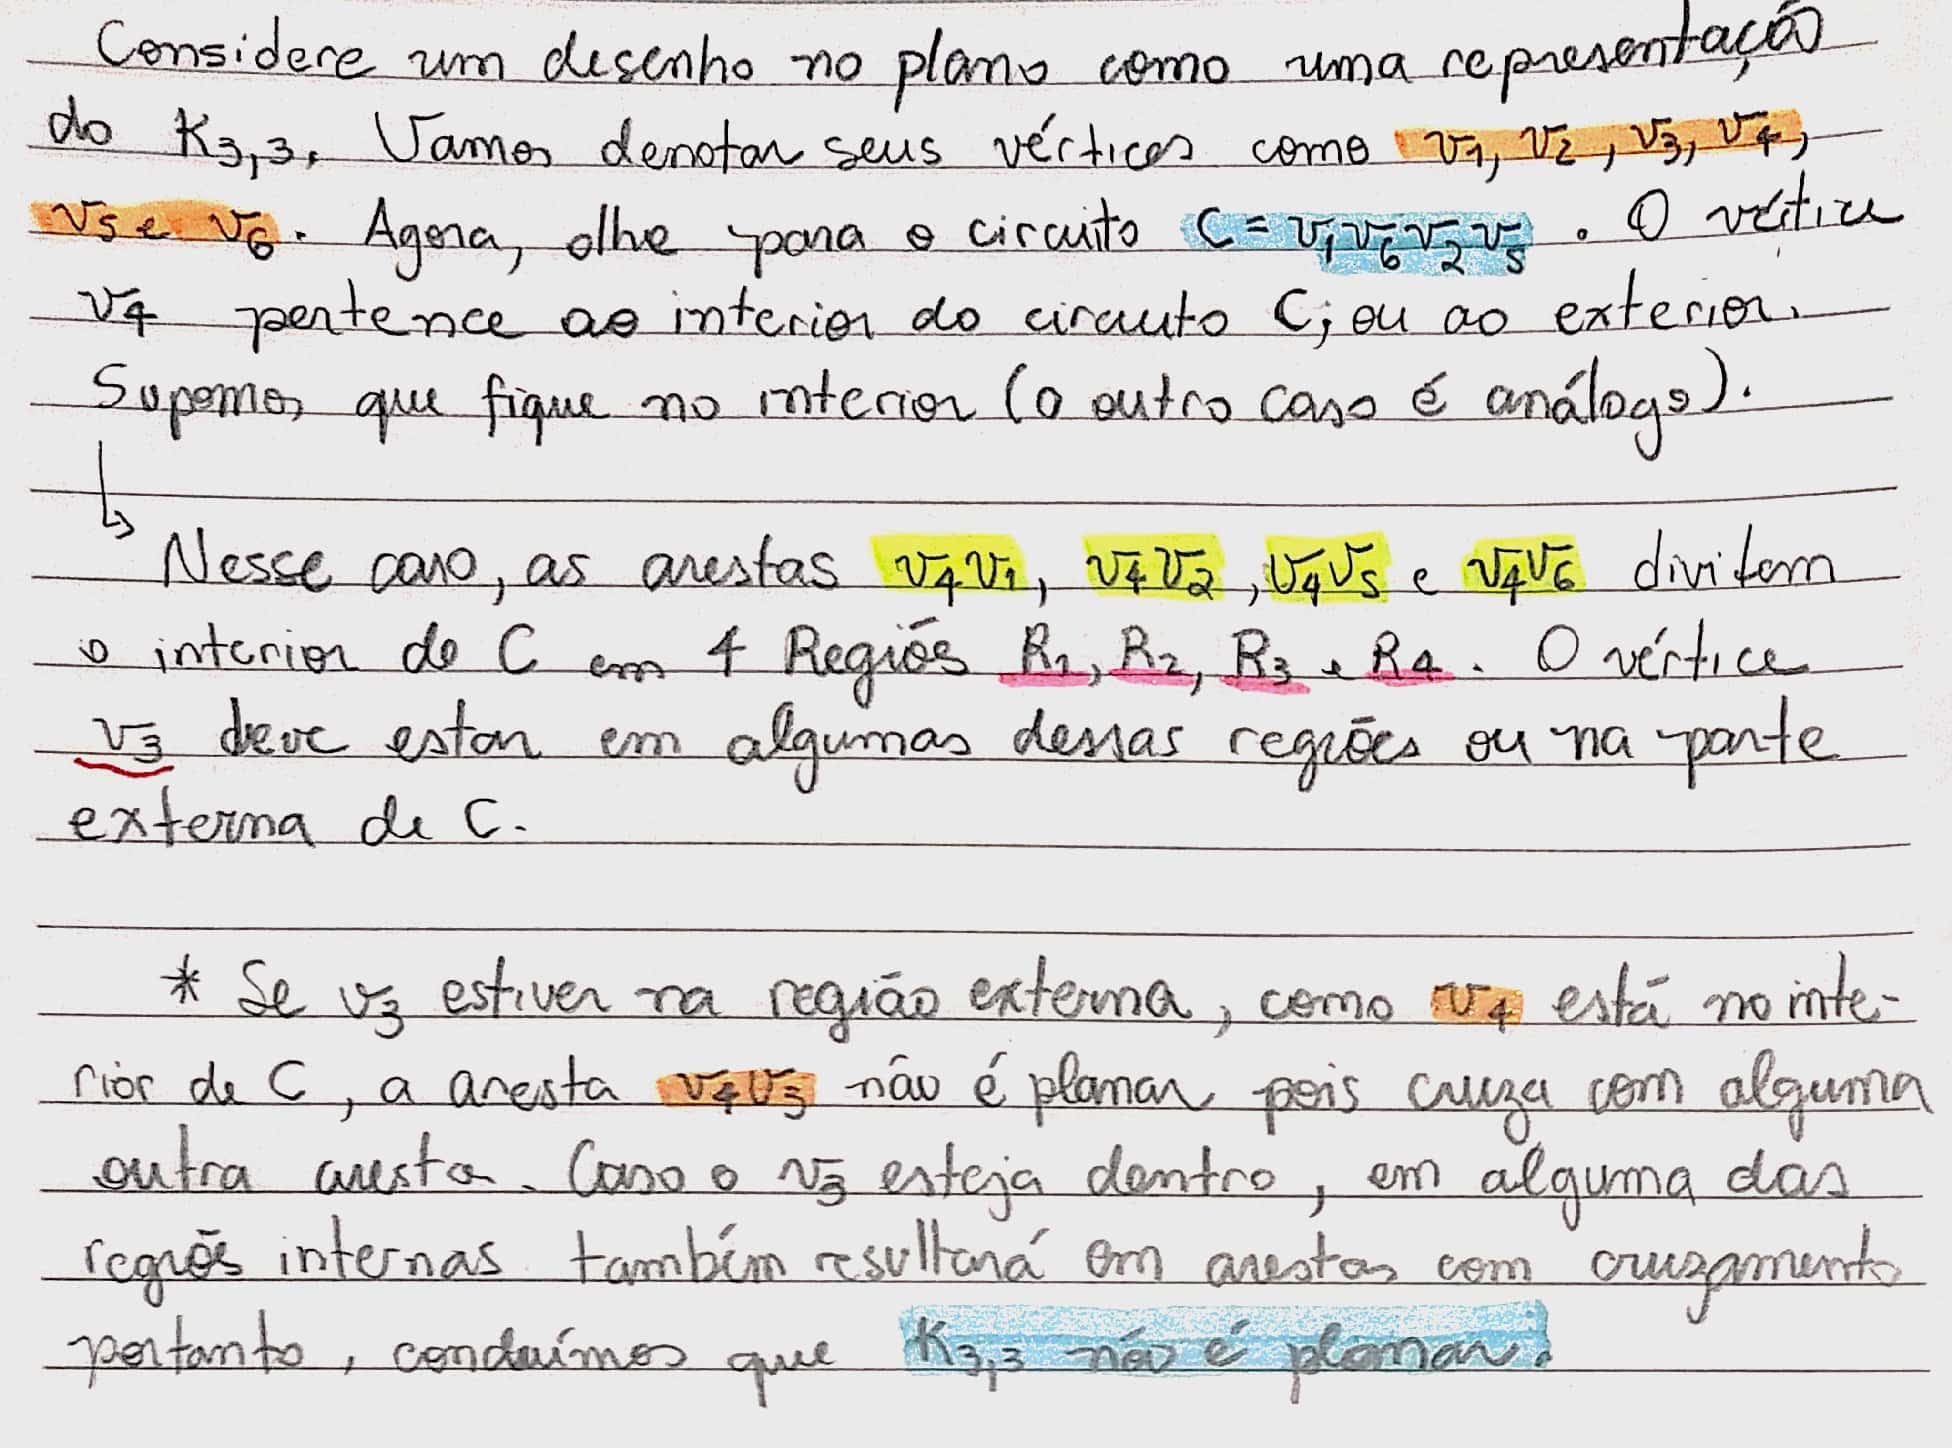 Considere um desenho no plano como uma representação
do K3,3. Vamos denotar seus vértices como v1, v2, v3, v4,
v5 e v6. Agora, olhe para o circuito C = v1v6v2v5. O vértice
v4 pertence ao interior do circuito C; ou ao exterior.
Supomos que fique no interior (o outro caso é análogo).
↳ Nesse caso, as arestas v4v1, v4v2, v4v5 e v4v6 dividem
o interior de C em 4 Regiõs R1, R2, R3 e R4. O vértice
v3 deve estar em algumas dessas regiões ou na parte
externa de C.
* Se v3 estiver na região externa, como v4 está no inte-
rior de C, a aresta v4v3 não é planar pois cruza com alguma
outra aresta. Caso o v3 esteja dentro, em alguma das
regiõs internas também resultará em arestas com cruzamento
portanto, concluímos que K3,3 não é planar.